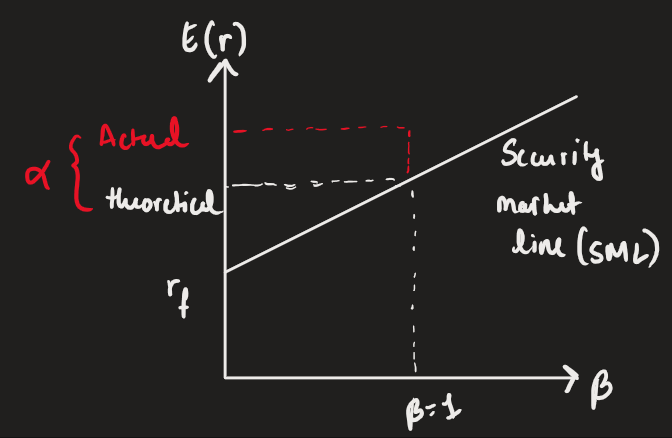 E(r)
Actual
α
theoretical
Security
market
line (SML)
rf
β
β=1